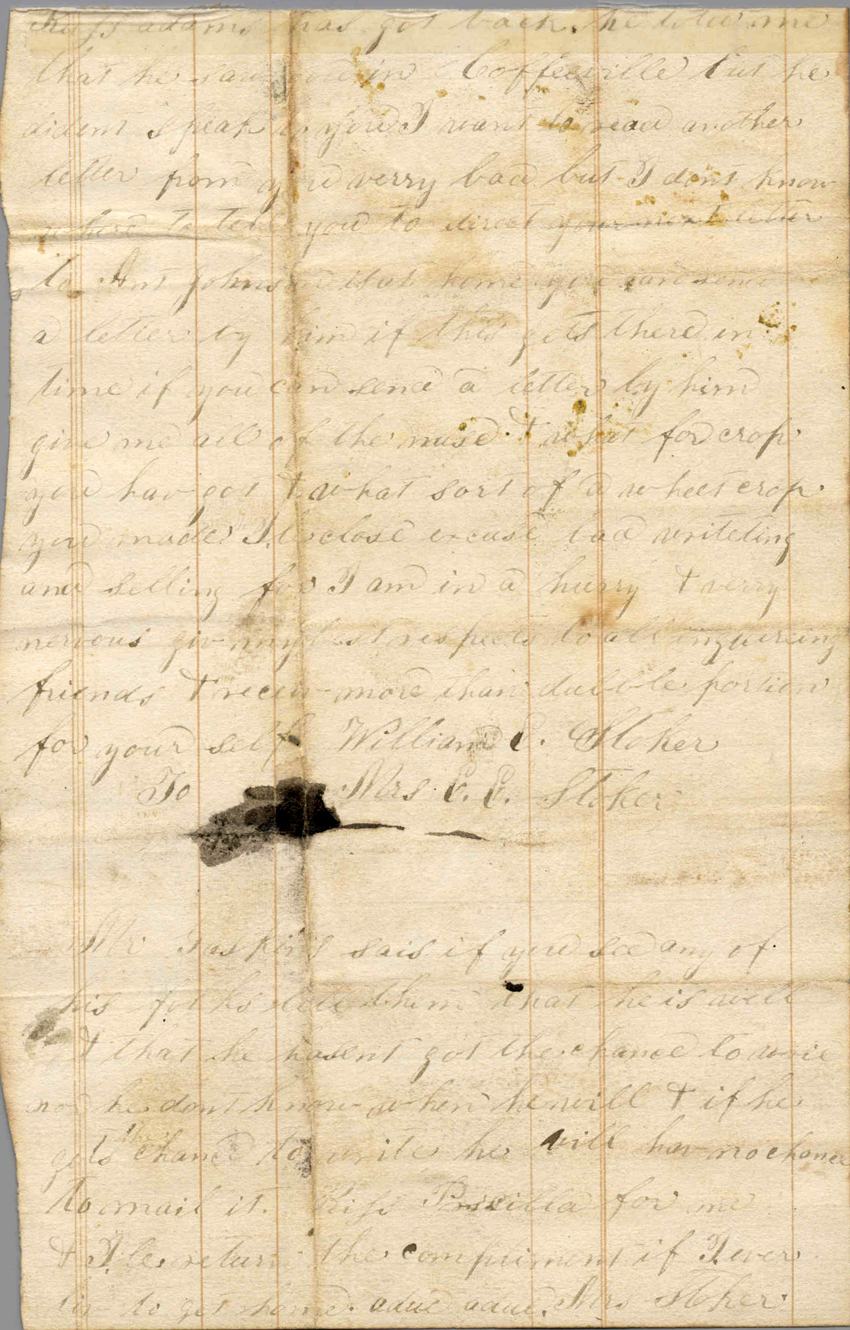 adams has got back he told me
that he saw you in Coffeeville but he
dident speak to you I want to read another
letter from you verry bad but I dont know
where to tell you to direct your next letter
to Ant Johnson is at home you can send
a letter by him if this gets there in
time if you can send a letter by him
give me all of the nuse & what for crop
you hav got & what sort of a wheet crop
you made I le close excuse bad writeting
and selling for I am in a hurry & verry
nervous giv my best respects to all inquireing
friends & receiv more than dubble portion
for your self William E. Stoker
To Mrs. E. E. Stoker
Mr Gaskins sais if you see any of
his folks tell them that he is well
& that he hasent got the chance to
nor he dont know when he will & if he
gets the chance to write he will hav no chance
to mail it. Kiss Priscilla for me
& I le return the compliment if I ever
liv to get home. adue adue. Mrs Stoker